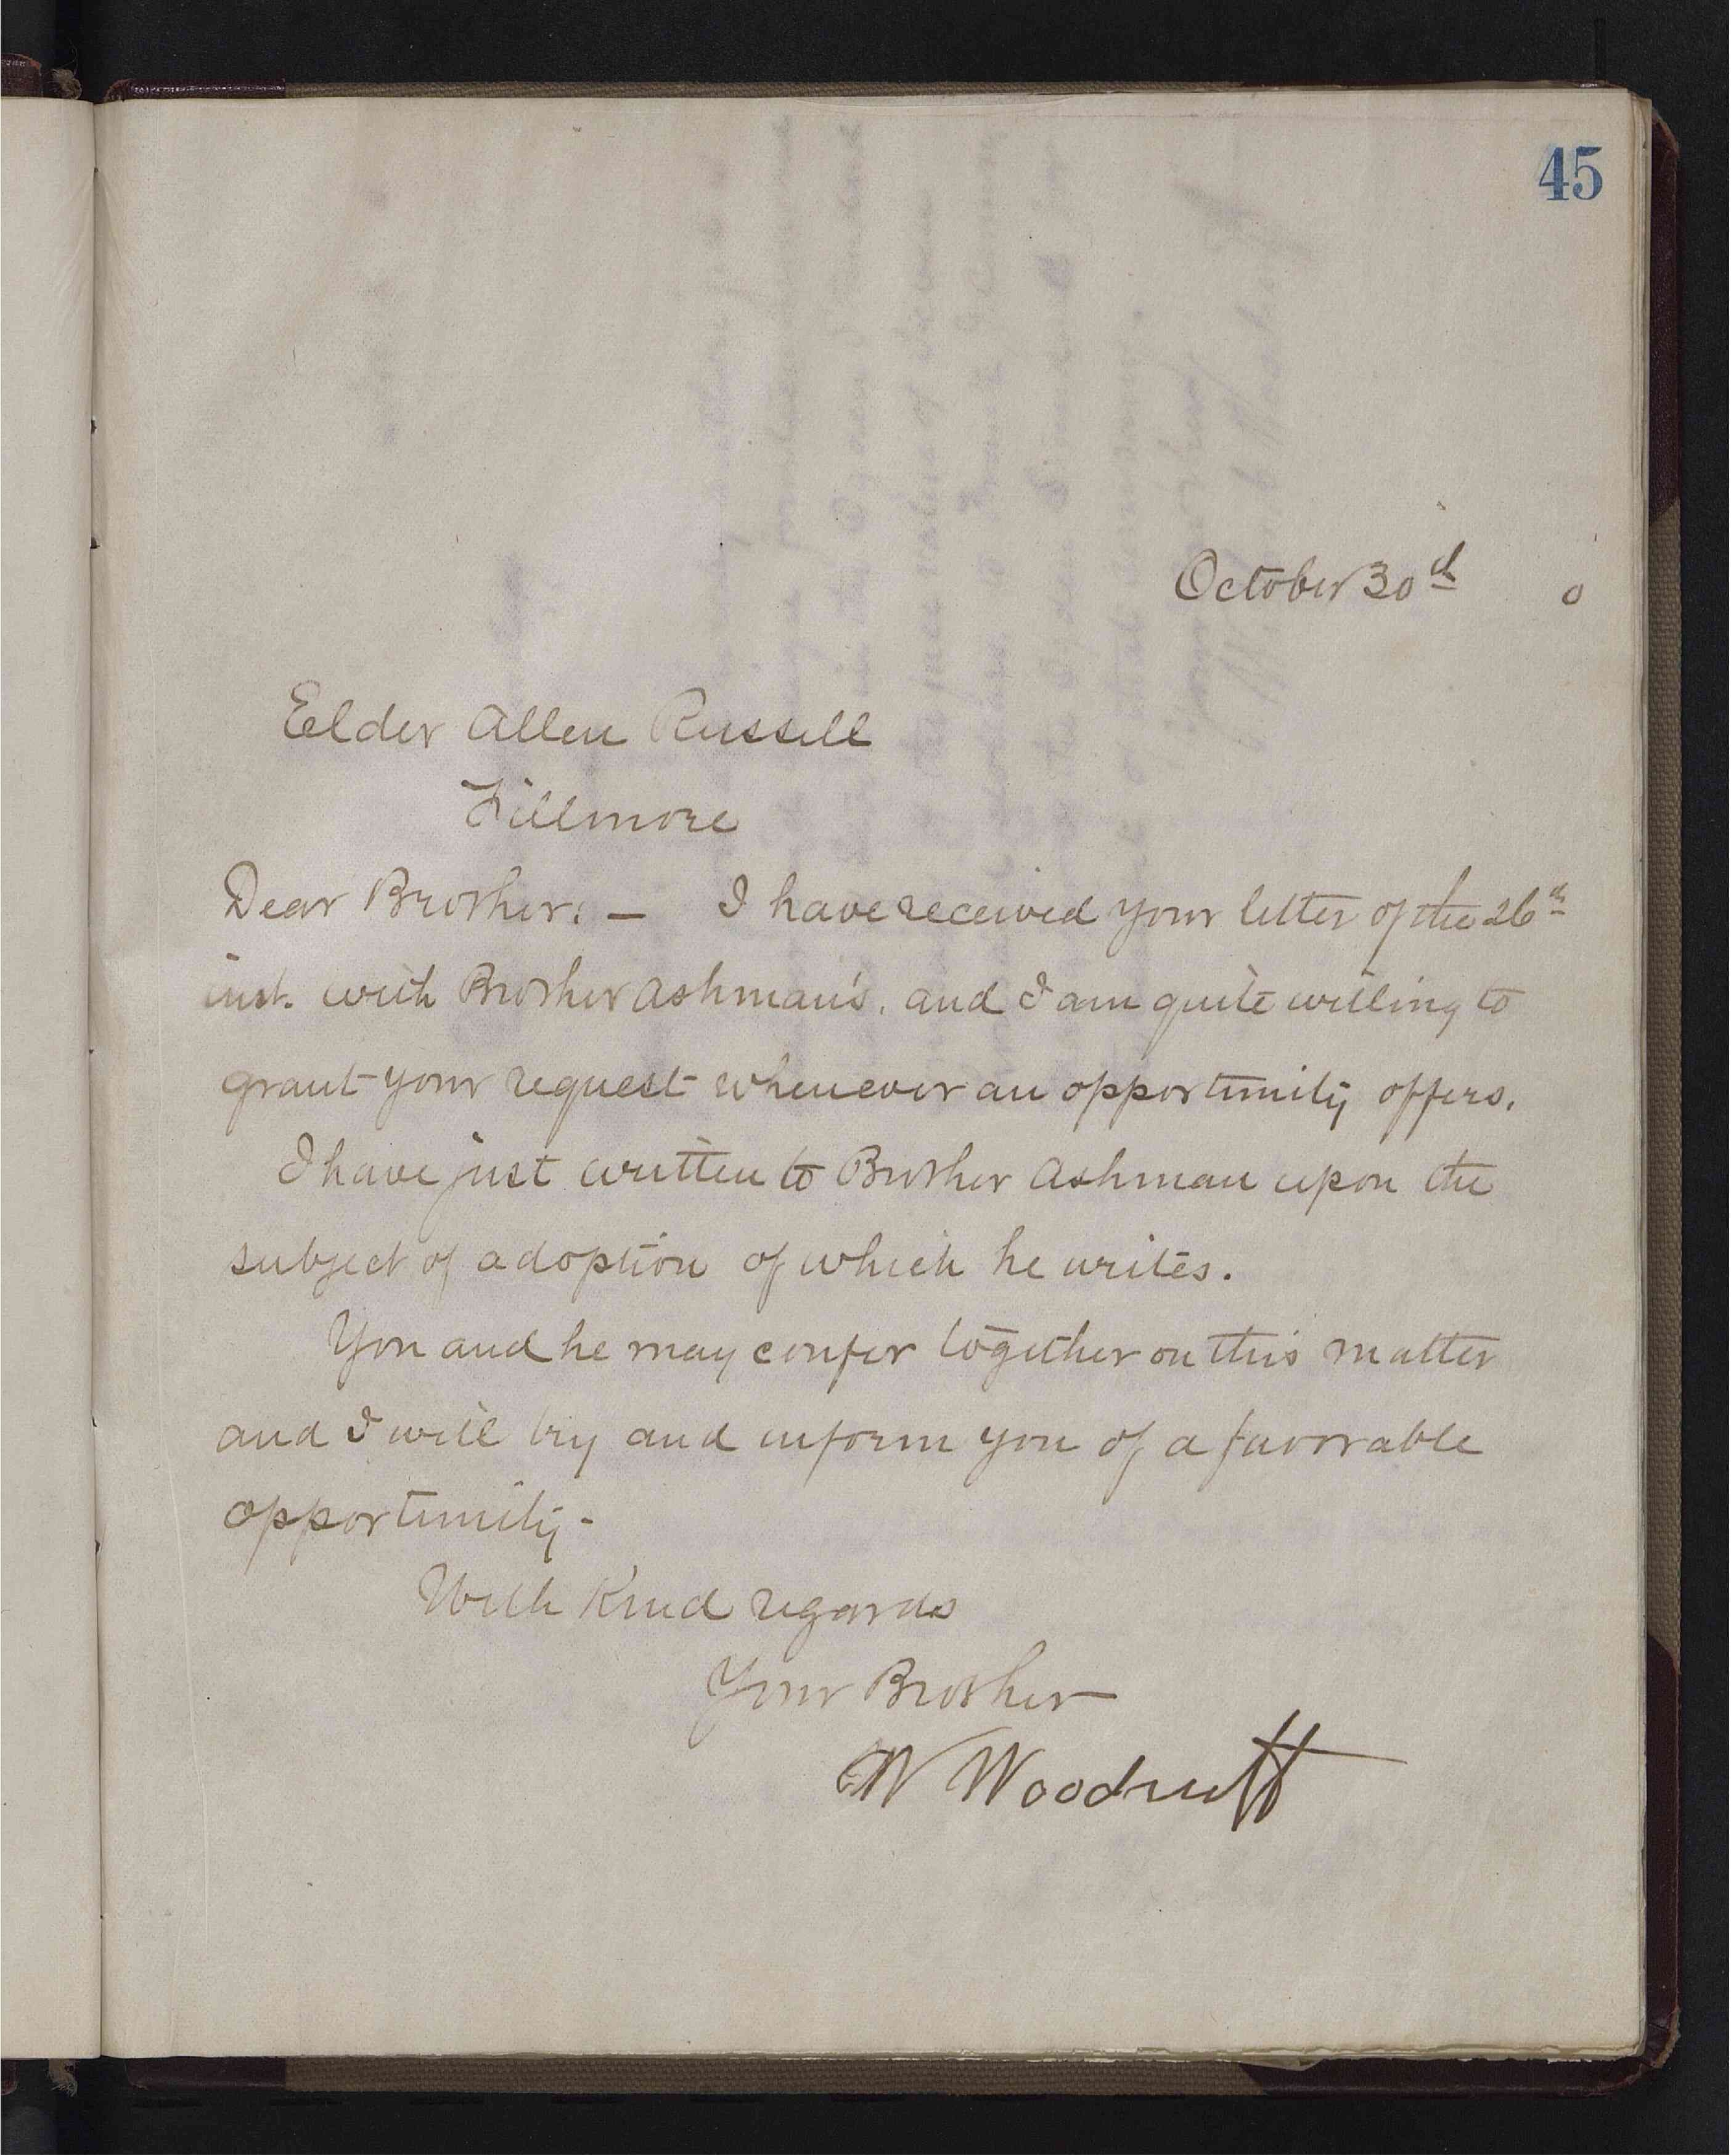 45
October 30th 0
Elder Allen Russell
Fillmore
Dear Brother: — I have received your letter of the 26th
inst. with Brother Ashman's, and I am quite willing to
grant your request whenever an opportunity offers.
I have just written to Brother Ashman upon the
subject of adoption of which he writes.
You and he may confer together on this matter
and I will try and inform you of a favorable
opportunity-
With Kind regards
Your Brother
W Woodruff